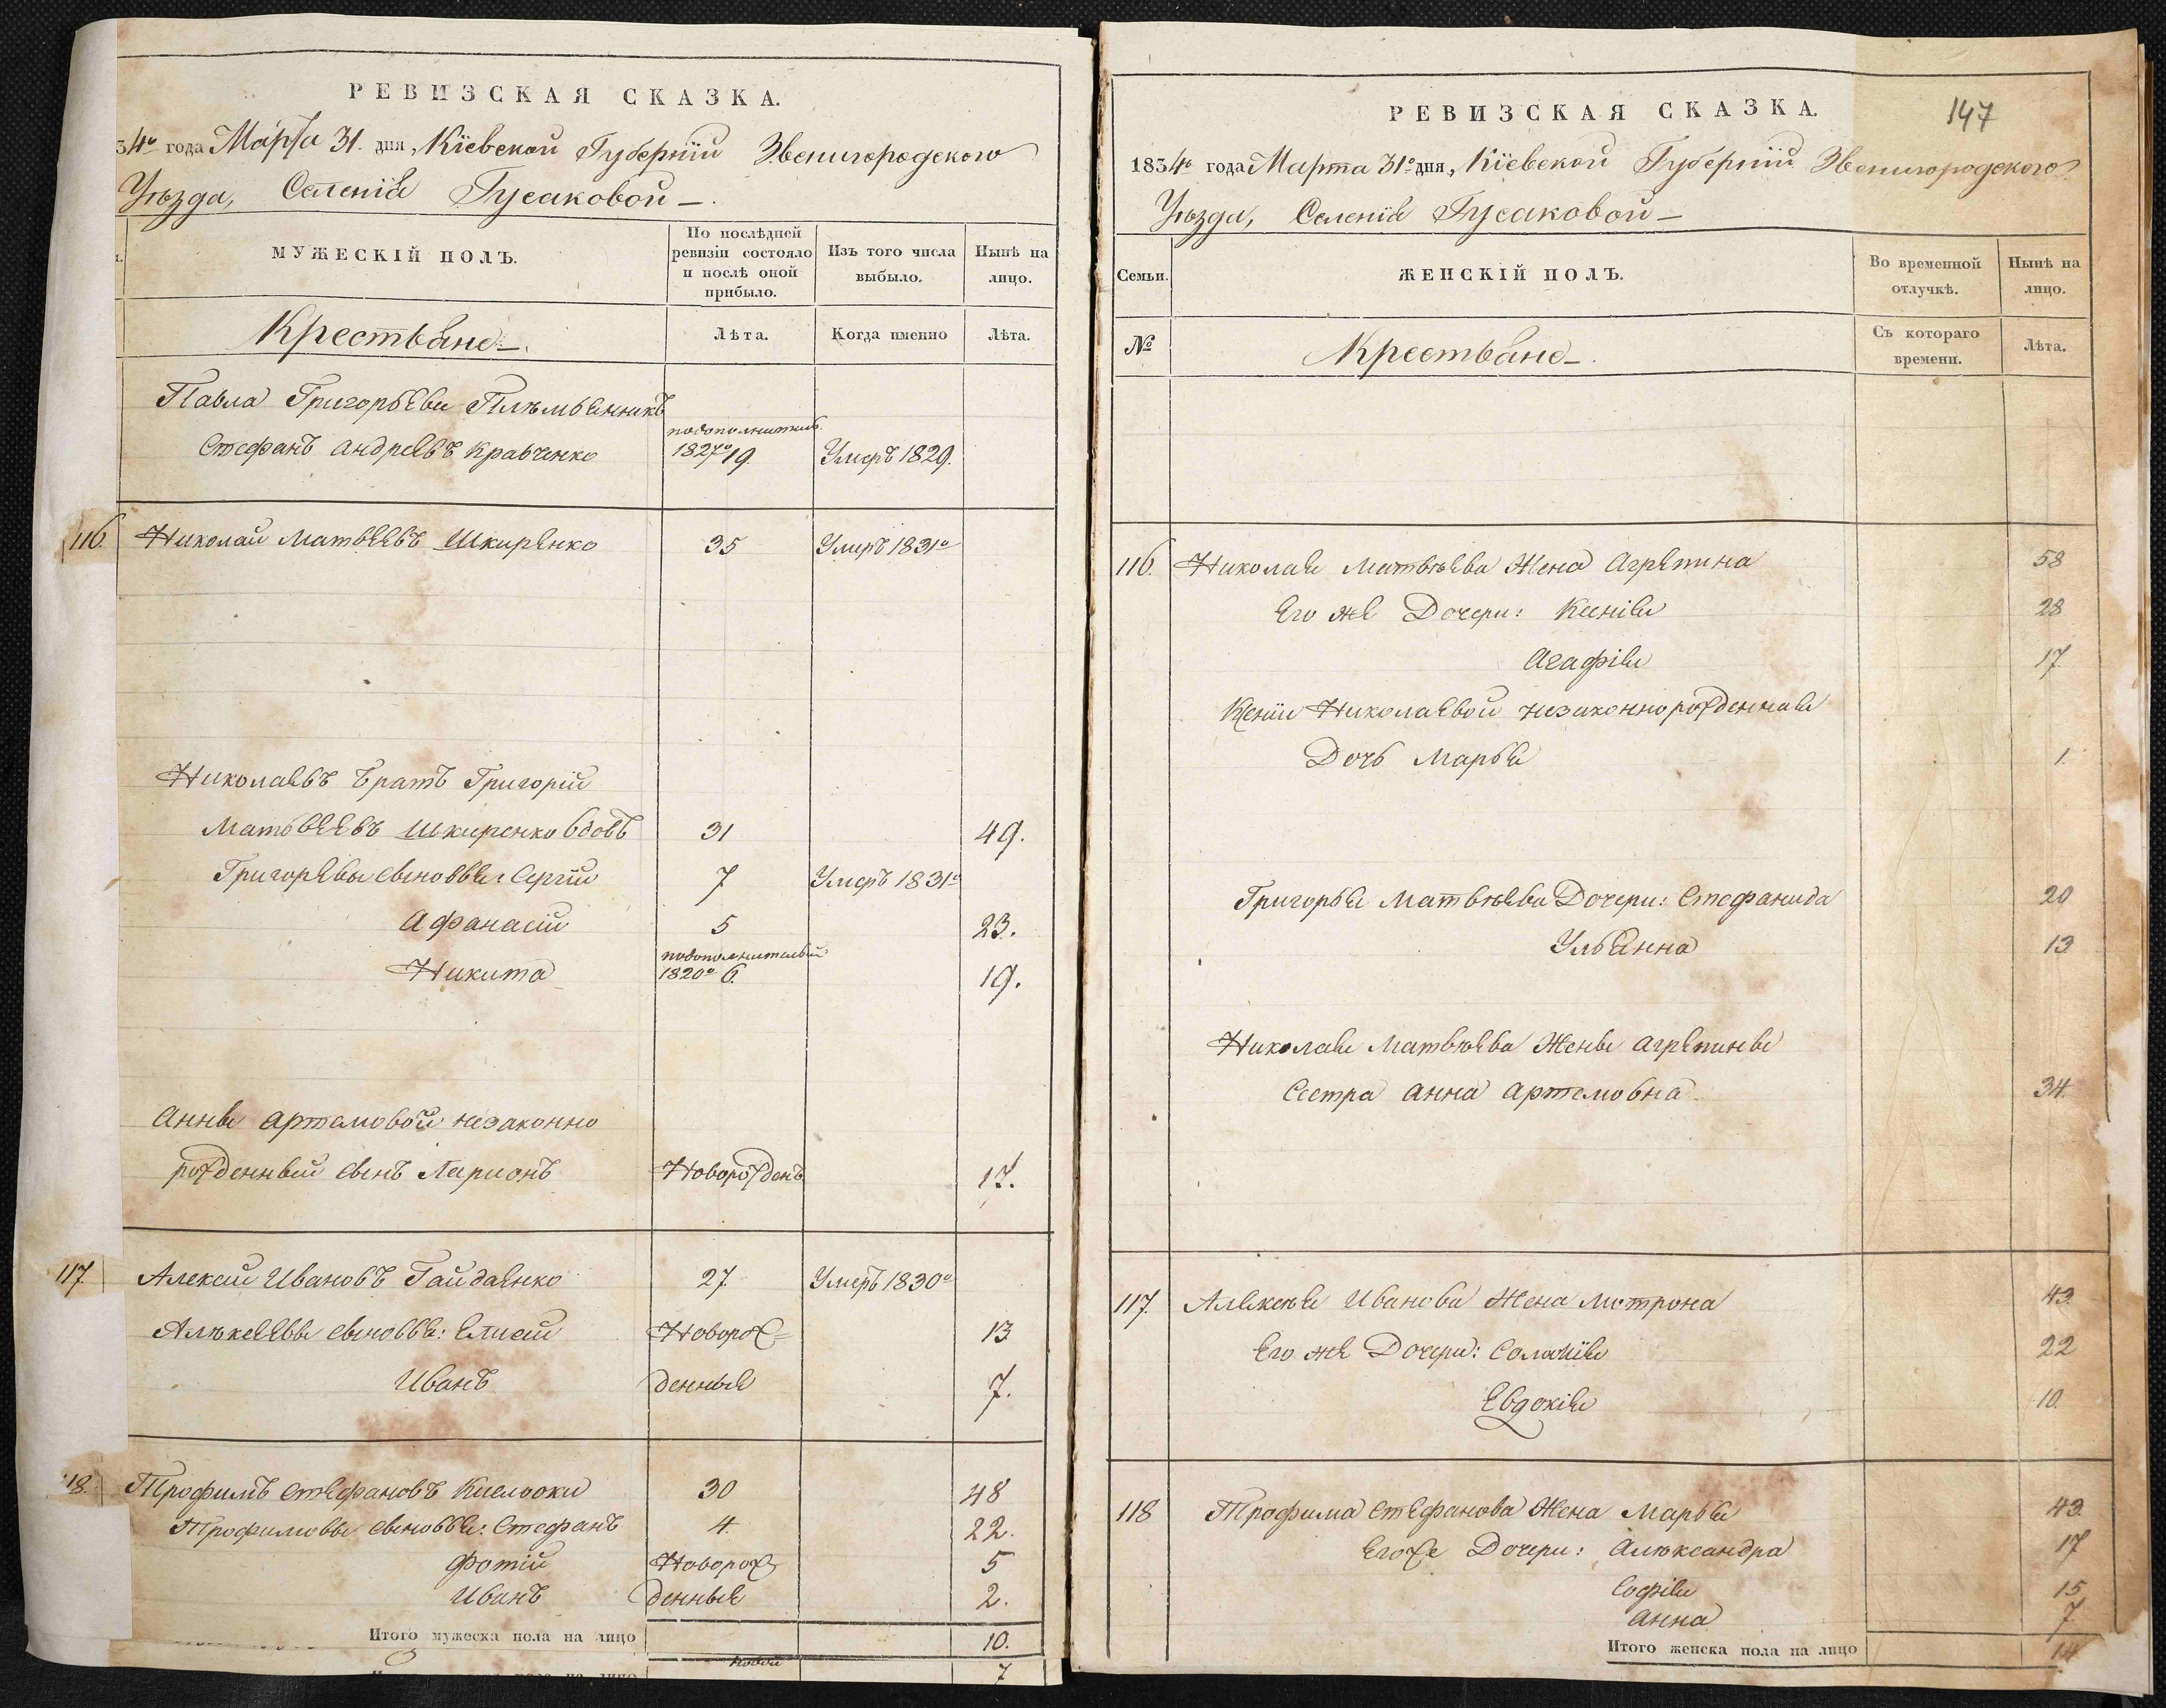 РЕВИЗСКАЯ СКАЗКА.
34го года Марта 31. дня, Кіевской Губерніи Звенигородскаго
Уѣзда, Селенія Гусаковой —.
МУЖЕСКІЙ ПОЛЪ.
По послѣдней
ревизіи состояло
и послѣ оной
прибыло.
Изъ того числа
выбыло.
Нынѣ на
лицо.
Крестьяне —.
Лѣта.
Когда именно
Лѣта.
Павла Григорьева Племьянникъ
Стефанъ Андреевъ Кравченко
1827го 19. Умеръ 1829.
116. Николай Матвеевъ Шкиренко 35 Умеръ 1831го
Николаевъ братъ Григорій
Матьвеевъ Шкиренко вдовъ 31 49.
Григорьевы сыновья: Сергій 7 Умеръ 1831го
Афанасій 5 23.
Никита 1820го 6. 19.
Анны Артемовой незаконно
рожденный сынъ Ларионъ Новорожденъ 17.
117. Алексей Ивановъ Гайдаенко 27. Умеръ 1830го
Алексеевы сыновья: Елисей Новорож= 13
Иванъ денные 7.
118. Трофимъ Стефановъ 30 48
Трофимовы сыновья: Стефанъ 4. 22.
Фотій Новорож 5
Иванъ денные 2.
Итого мужеска пола на лицо 10.
7
РЕВИЗСКАЯ СКАЗКА.
147
1834го года Марта 31го дня, Кіевской Губерніи Звенигородскаго
Уѣзда, Селенія Гусаковой —
Семьи.
ЖЕНСКІЙ ПОЛЪ.
Во временной
отлучкѣ.
Нынѣ на
лицо.
№
Крестьяне —.
Съ котораго
времени.
Лѣта.
116. Николая Матвѣева Жена Агрепина 58
Его же Дочери: Ксенія 28
Агафія 17.
Ксеніи Николаевой незаконнорожденная
Дочь Марья 1.
Григорья Матвѣева Дочери: Стефанида 20
Ульянна 13
Николая Матвѣева Жены Агрепины
Сестра Анна Артемовна 34.
117. Алексѣя Иванова Жена Мотрона 43.
Его же Дочери: Соломія 22
Евдокія 10.
118 Трофима Стефанова Жена Марья 43.
Егоже Дочери: Александра 17
Софія 15
Анна 7
Итого женска пола на лицо 14